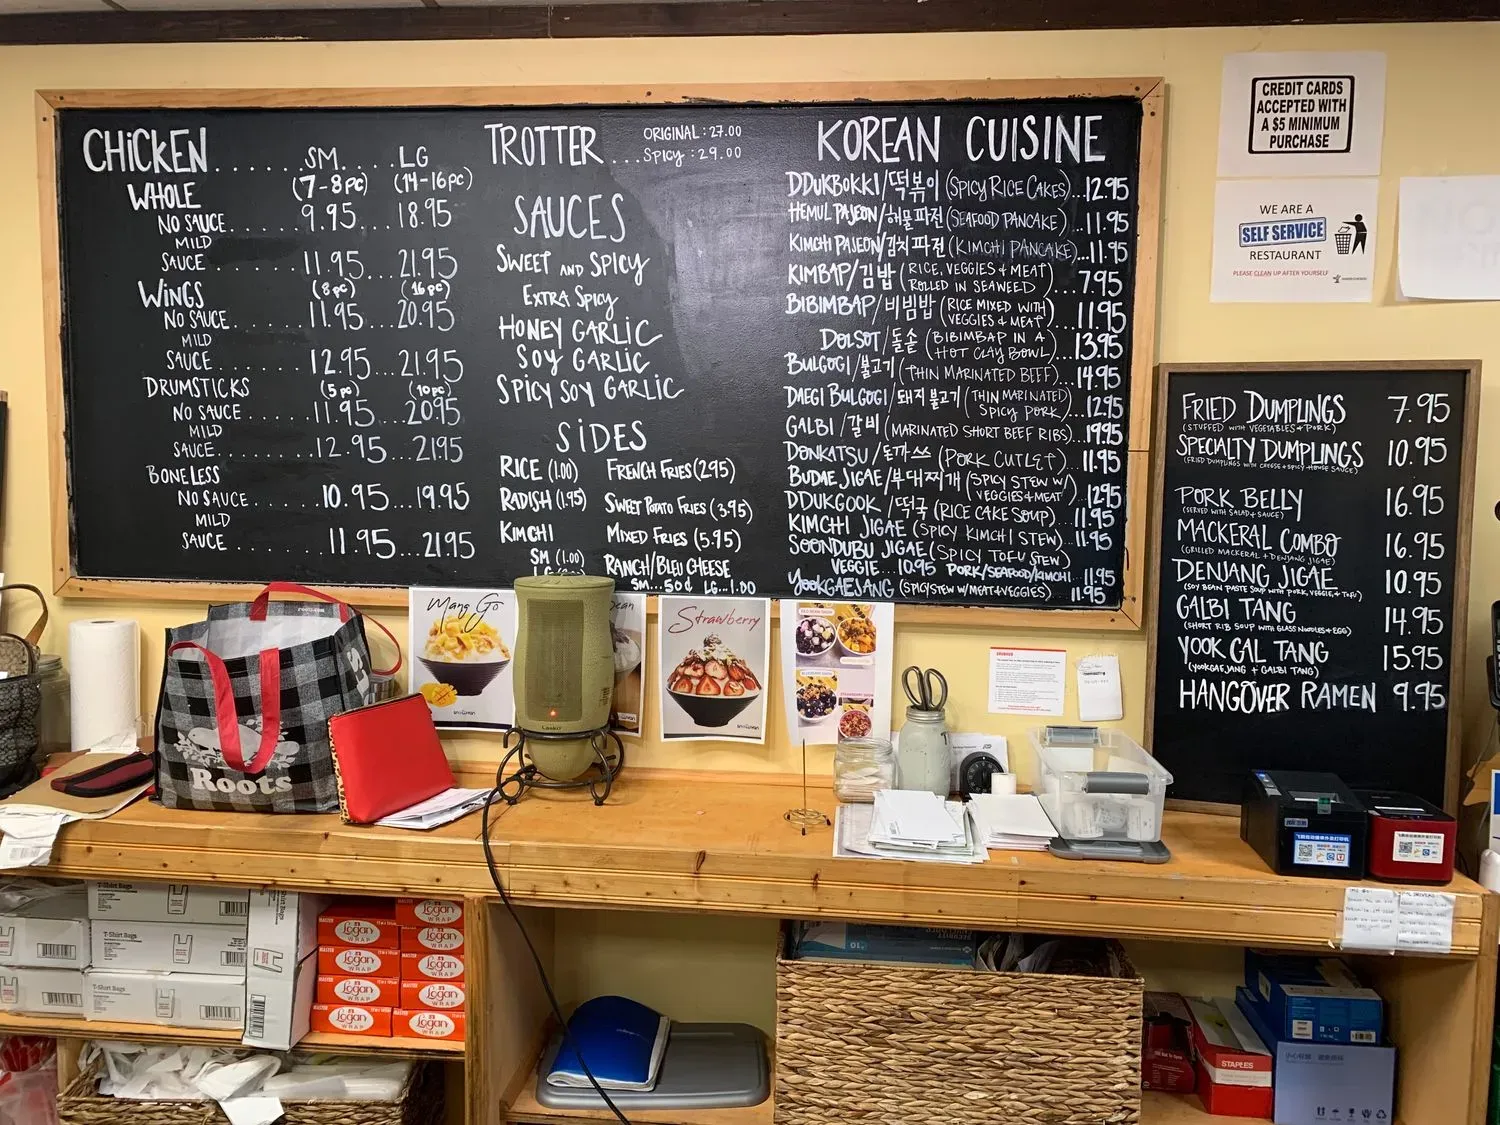 CHICKEN.......SM.....LG
(7-8 PC) (14-16 PC)
WHOLE
NO SAUCE.......9.95...18.95
MILD
SAUCE.........11.95...21.95
WINGS (8 PC) (16 PC)
NO SAUCE.......11.95...20.95
MILD
SAUCE.........12.95...21.95
DRUMSTICKS (5 PC) (10 PC)
NO SAUCE......11.95...20.95
MILD
SAUCE.........12.95...21.95
BONELESS
NO SAUCE.......10.95...19.95
MILD
SAUCE.........11.95...21.95
TROTTER... ORIGINAL: 27.00
SPICY: 29.00
SAUCES
SWEET AND SPICY
EXTRA SPICY
HONEY GARLIC
SOY GARLIC
SPICY SOY GARLIC
SIDES
RICE (1.00)
RADISH (1.95)
KIMCHI
SM (1.00)
FRENCH FRIES (2.95)
SWEET POTATO FRIES (3.95)
MIXED FRIES (5.95)
RANCH/BLEU CHEESE
SM...50¢ LG...1.00
KOREAN CUISINE
DDUKBOKKI/떡볶이 (SPICY RICE CAKES)...12.95
HEMUL PAJEON/해물파전 (SEAFOOD PANCAKE)...11.95
KIMCHI PAJEON/김치파전 (KIMCHI PANCAKE)...11.95
KIMBAP/김밥 (RICE, VEGGIES & MEAT
ROLLED IN SEAWEED)...7.95
BIBIMBAP/비빔밥 (RICE MIXED WITH
VEGGIES & MEAT)...11.95
DOLSOT/돌솥 (BIBIMBAP IN A
HOT CLAY BOWL)...13.95
BULGOGI/불고기 (THIN MARINATED BEEF)...14.95
DAEGI BULGOGI/돼지불고기 (THIN MARINATED
SPICY PORK)...12.95
GALBI/갈비 (MARINATED SHORT BEEF RIBS)...19.95
DONKATSU/돈까쓰 (PORK CUTLET)...11.95
BUDAE JIGAE/부대찌개 (SPICY STEW W/
VEGGIES & MEAT)...12.95
DDUKGOOK/떡국 (RICE CAKE SOUP)...11.95
KIMCHI JIGAE (SPICY KIMCHI STEW)...11.95
SOONDUBU JIGAE (SPICY TOFU STEW)
VEGGIE...10.95 PORK/SEAFOOD/KIMCHI...11.95
YOOKGAEJANG (SPICY STEW W/MEAT & VEGGIES) 11.95
CREDIT CARDS
ACCEPTED WITH
A $5 MINIMUM
PURCHASE
WE ARE A
SELF SERVICE
RESTAURANT
PLEASE CLEAN UP AFTER YOURSELF
FRIED DUMPLINGS 7.95
(STUFFED WITH VEGETABLES & PORK)
SPECIALTY DUMPLINGS 10.95
(FRIED DUMPLINGS WITH CHEESE & SPICY HOUSE SAUCE)
PORK BELLY 16.95
(SERVED WITH SALAD & SAUCE)
MACKERAL COMBO 16.95
(GRILLED MACKERAL & DENJANG JIGAE)
DENJANG JIGAE 10.95
(SOY BEAN PASTE SOUP WITH PORK, VEGGIE, & TOFU)
GALBI TANG 14.95
(SHORT RIB SOUP WITH GLASS NOODLES & EGG)
YOOK GAL TANG 15.95
(YOOKGAEJANG + GALBI TANG)
HANGOVER RAMEN 9.95
Mang Go
Strawberry
Roots
T-Shirt Bags
T-Shirt Bags
T-Shirt Bags
Logan
WRAP
Logan
WRAP
Logan
WRAP
Logan
WRAP
Logan
WRAP
Logan
WRAP
Logan
WRAP
Logan
WRAP
STAPLES